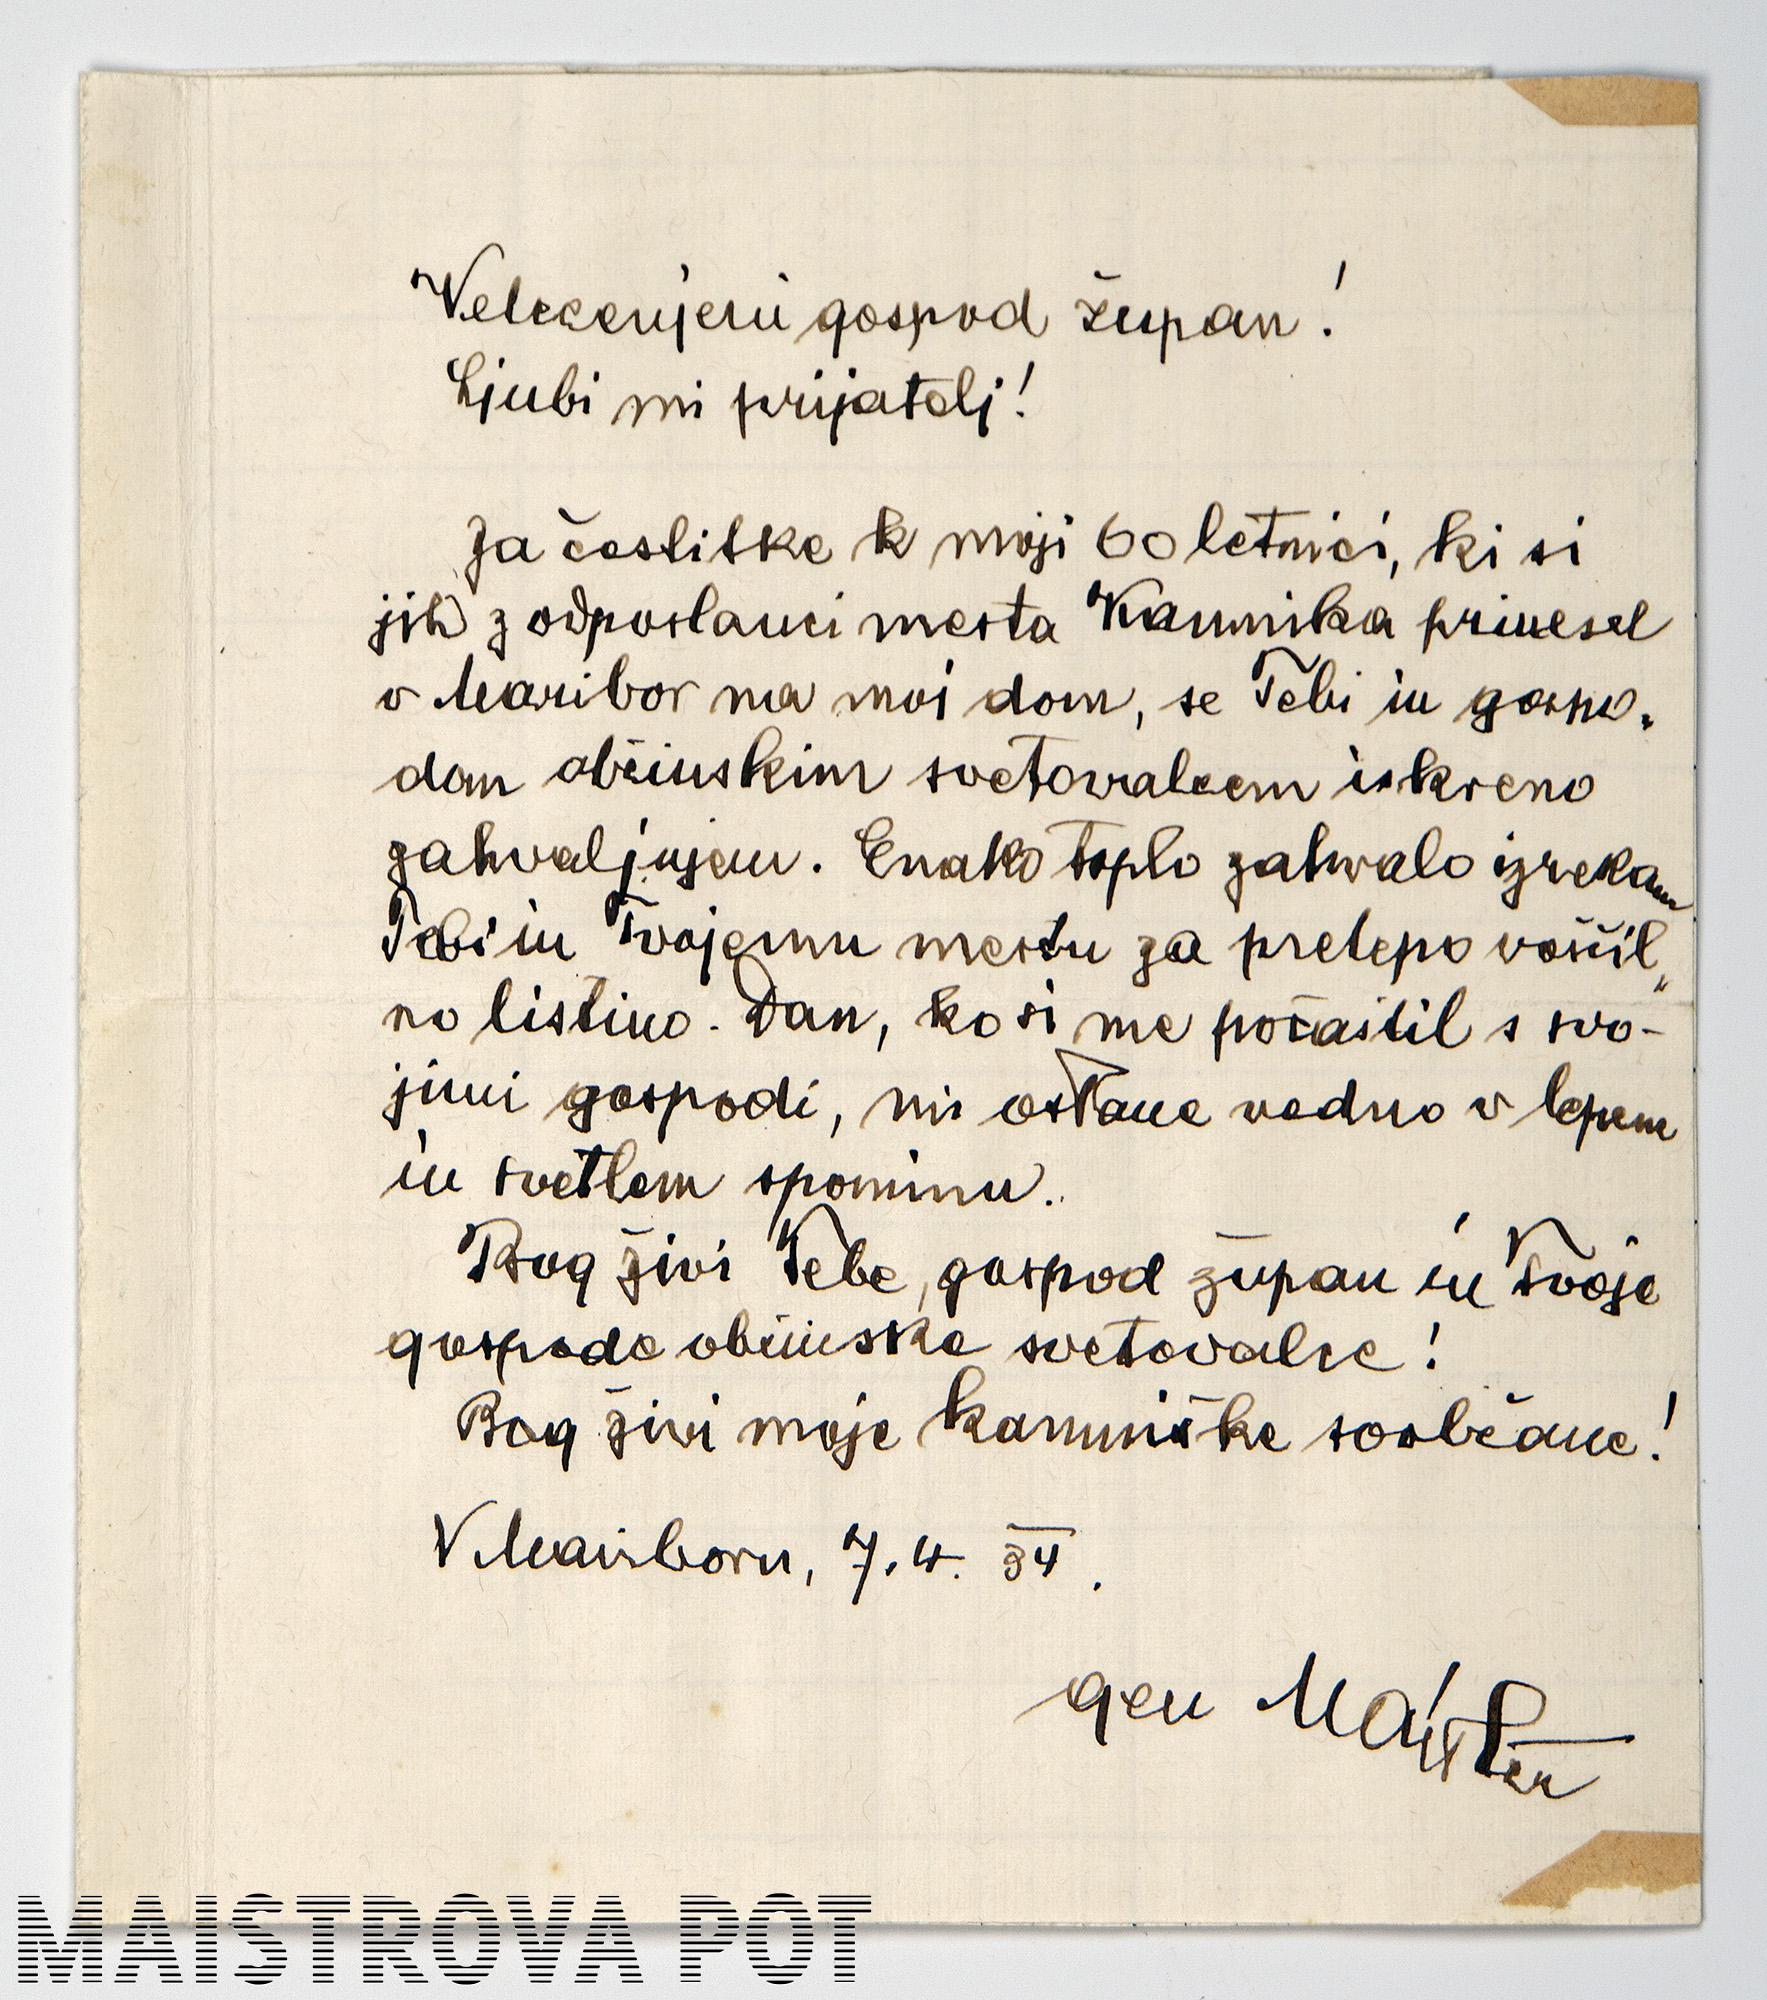 Velecenjeni gospod župan!
Ljubi mi prijatelj!
Za čestitke k moji 60 letnici, ki si
jih z odposlanci mesta Kamnika prinesel
v Maribor na moj dom, se Tebi in gospo-
dom občinskim svetovalcem iskreno
zahvaljujem. Enako toplo zahvalo izrekam
Tebi in Tvojemu mestu za prelepo voščil-
no listino. Dan, ko si me počastil s svo-
jimi gospodi, mi ostane vedno v lepem
in svetlem spominu.
Bog živi Tebe, gospod župan in Tvoje
gospode občinske svetovalce!
Bog živi moje kamniške soobčane!
V Mariboru, 7. 4. 34.
gen Maister
MAISTROVA POT